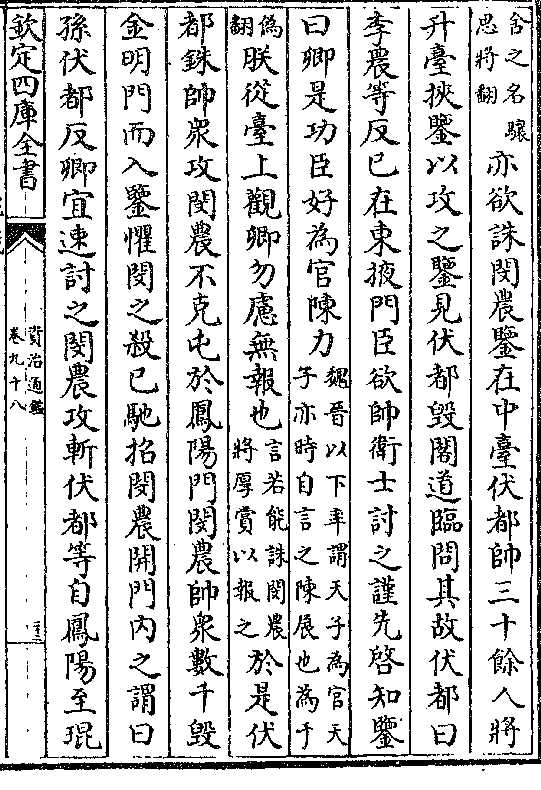 舍之名驤
思將翻亦欲誅閔農鑒在中臺伏都帥三十餘人將
升臺挾鑒以攻之鑒見伏都毀閣道臨問其故伏都曰
李農等反已在東掖門臣欲帥衛士討之謹先啓知鑒
曰卿是功臣好為官陳力魏晉以下率謂天子為官天
子亦時自言之陳展也為于
偽
翻朕從臺上觀卿勿慮無報也言若能誅閔農
將厚賞以報之於是伏
都銖帥衆攻閔農不克屯於鳳陽門閔農帥衆數千毀
金明門而入鑒懼閔之殺已馳招閔農開門內之謂曰
孫伏都反卿宜速討之閔農攻斬伏都等自鳳陽至琨
欽定四庫全書
資治通鑑
卷九十八